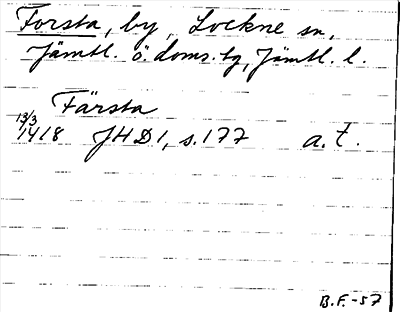 Forsta, by, Lockne sn,
Jämtl. ö. doms. tg, Jämtl. l.
Färsta
13/3
1418 JHD1, s. 177 a. t.
B.F.-57